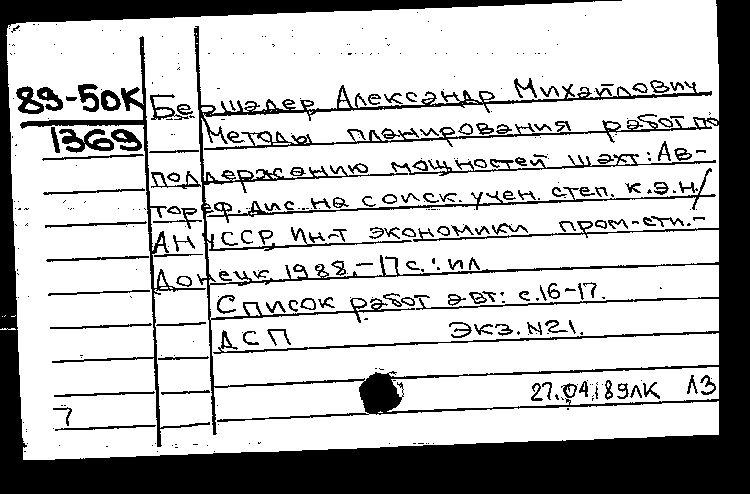 89-50К
1369
Бершадер Александр Михайлович
Методы планирования работ по
поддержанию мощностей шахт: Ав-
тореф. дис. на соиск. учен. степ. к.э.н/
АН УССР, Ин-т экономики пром-сти.-
Донецк, 1988.-17с.: ил
Список работ авт: с.16-17.
ДСП экз. №21.
27.04.89лк 13
7